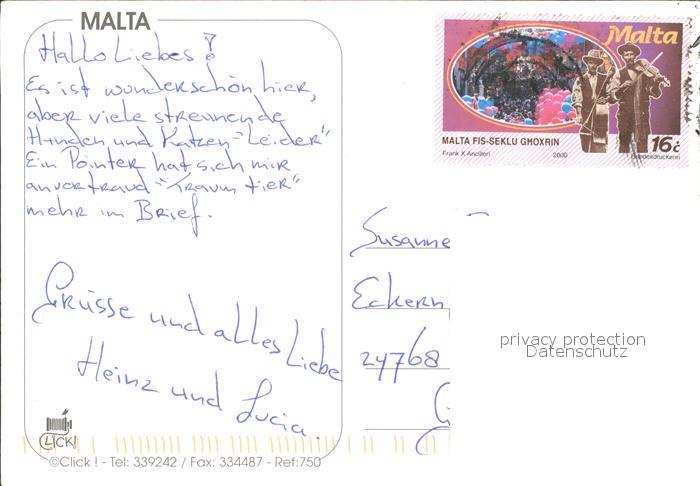 MALTA
Hallo Liebes!
Es ist wunderschön hier,
aber viele streunende
Hunden und Katzen "Leider"
Ein Pointer hat sich mir
anvertraud "Traum tier"
mehr im Brief.
Grüsse und alles Liebe
Heinz und Lucia
CLICK!
©Click ! - Tel: 339242 / Fax: 334487 - Ref:750
Malta
MALTA FIS-SEKLU GHOXRIN
16c
Frank X Ancilleri 2000
Susanne
Eckern
24768
privacy protection
Datenschutz